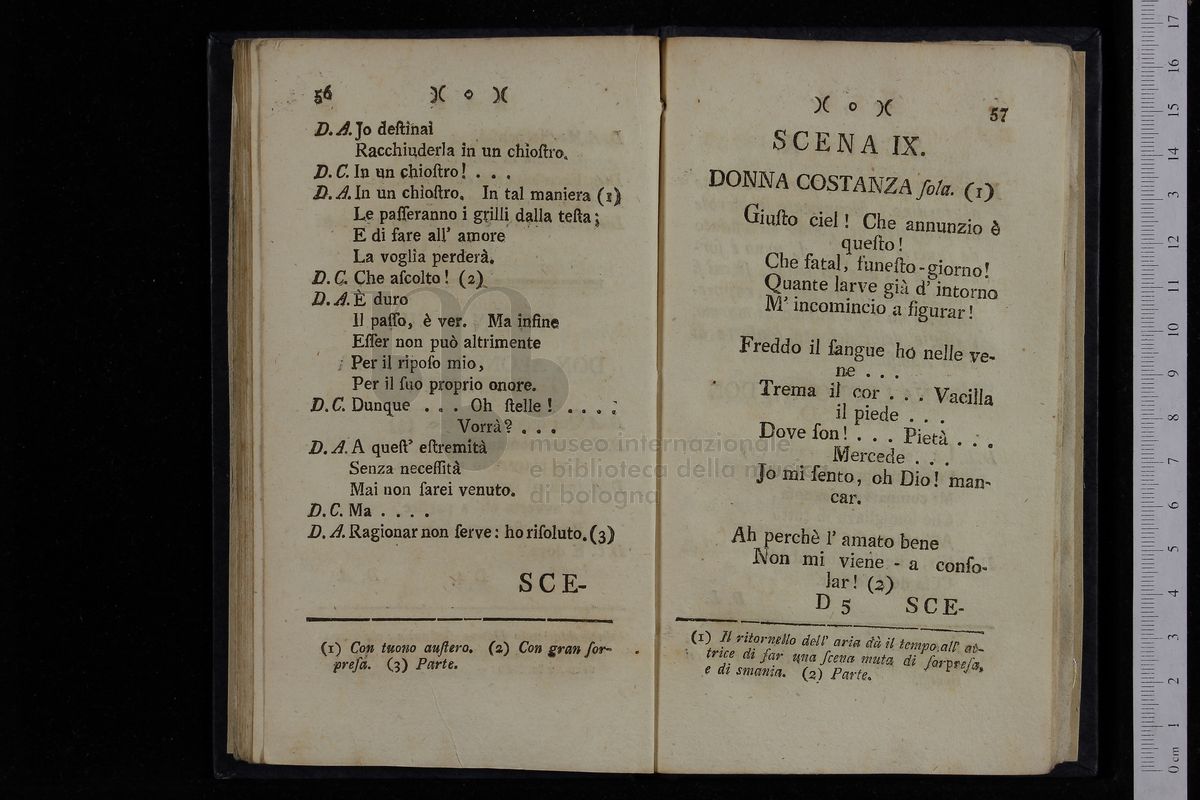 56 )( o )(
D. A. Jo deſtinai
Racchiuderla in un chioſtro.
D. C. In un chioſtro! . . .
D. A. In un chioſtro. In tal maniera (1)
Le paſſeranno i grilli dalla teſta;
E di fare all' amore
La voglia perderà.
D. C. Che aſcolto! (2)
D. A. È duro
Il paſſo, è ver. Ma infine
Eſſer non può altrimente
Per il ripoſo mio,
Per il ſuo proprio onore.
D. C. Dunque . . . Oh ſtelle! . . . .
Vorrà? . . .
D. A. A queſt' eſtremità
Senza neceſſità
Mai non ſarei venuto.
D. C. Ma . . . .
D. A. Ragionar non ſerve: ho riſoluto. (3)
SCE-
(1) Con tuono auſtero. (2) Con gran ſor-
preſa. (3) Parte.
)( o )( 57
SCENA IX.
DONNA COSTANZA ſola. (1)
Giuſto ciel! Che annunzio è
queſto!
Che fatal, funeſto-giorno!
Quante larve già d' intorno
M' incomincio a figurar!
Freddo il ſangue ho nelle ve-
ne . . .
Trema il cor . . . Vacilla
il piede . . .
Dove ſon! . . . Pietà . . .
Mercede . . .
Jo mi ſento, oh Dio! man-
car.
Ah perchè l' amato bene
Non mi viene - a conſo-
lar! (2)
D 5 SCE-
(1) Il ritornello dell' aria dà il tempo all' at-
trice di far una ſcena muta di ſorpreſa,
e di smania. (2) Parte.
museo internazionale
e biblioteca della musica
di bologna
17
16
15
14
13
12
11
10
9
8
7
6
5
4
3
2
1
0 cm